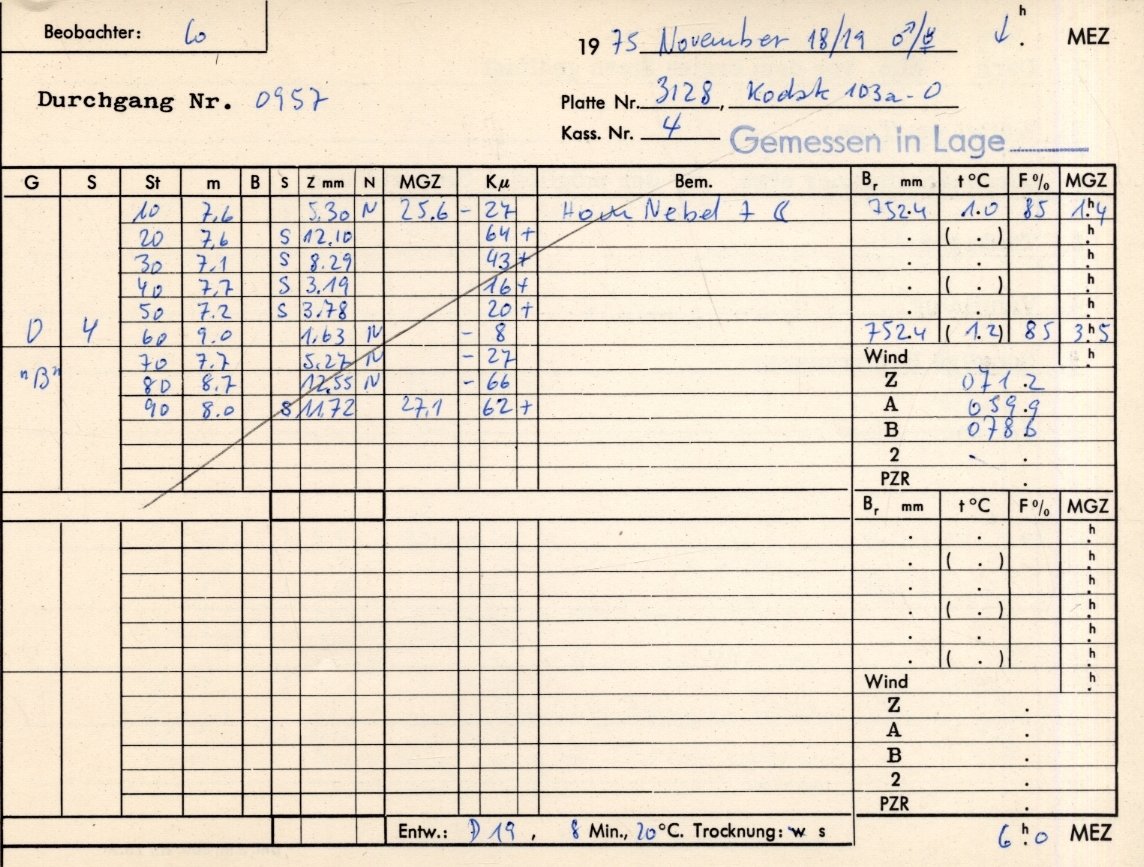 Beobachter: Co
1975 November 18/19 ♂/☿ ↓ . h MEZ
Durchgang Nr. 0957
Platte Nr. 3128, Kodak 103a-O
Kass. Nr. 4 Gemessen in Lage
G S St m B S Z mm N MGZ Kμ Bem. Br mm t °C F % MGZ
10 7.6 5.30 N 25.6 - 27 Nebel 752.4 1.0 85 1.h4
20 7.6 S 12.10 64 + . ( . ) .h
30 7.1 S 8.29 43 + . . .h
40 7.7 S 3.19 16 + . ( . ) .h
50 7.2 S 3.78 20 + . . .h
D 4 60 9.0 1.63 N - 8 752.4 ( 1.2) 85 3.h5
70 7.7 5.27 N - 27 Wind .h
"B" 80 8.7 12.55 N - 66 Z 071.2
90 8.0 S 11.72 27.1 62 + A 059.9
B 078.6
2 .
PZR .
Br mm t °C F % MGZ
. . .h
. ( . ) .h
. . .h
. ( . ) .h
. . .h
. ( . ) .h
Wind .h
Z .
A .
B .
2 .
PZR .
Entw.: D 19, 8 Min., 20°C. Trocknung: w s
6.h0 MEZ